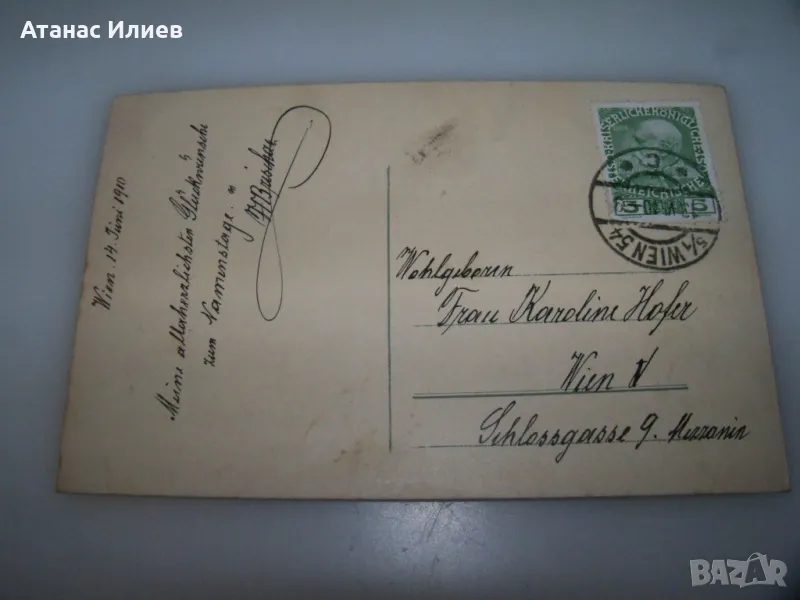 Атанас Илиев
Wien 14. Juni 1910
Meine allerherzlichsten Glückwünsche
zum Namenstage.
KAISERLICHE KÖNIGLICHE
5 5
5/1 WIEN 54
C
Wohlgeborin
Frau Karoline Hofer
Wien V
Schlossgasse 9. Mezzanin
BAZAR